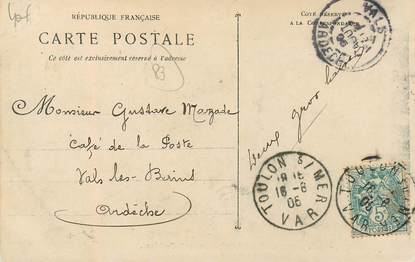 RÉPUBLIQUE FRANÇAISE
CARTE POSTALE
Ce côté est exclusivement réservé à l'adresse
CÔTÉ RÉSERVÉ
A LA CORRESPONDANCE
VALS
ARDÈCHE
Monsieur Gustave Mazade
Café de la Poste
Vals les-Bains
Ardèche
TOULON S/MER
18 15
16-8
06
VAR